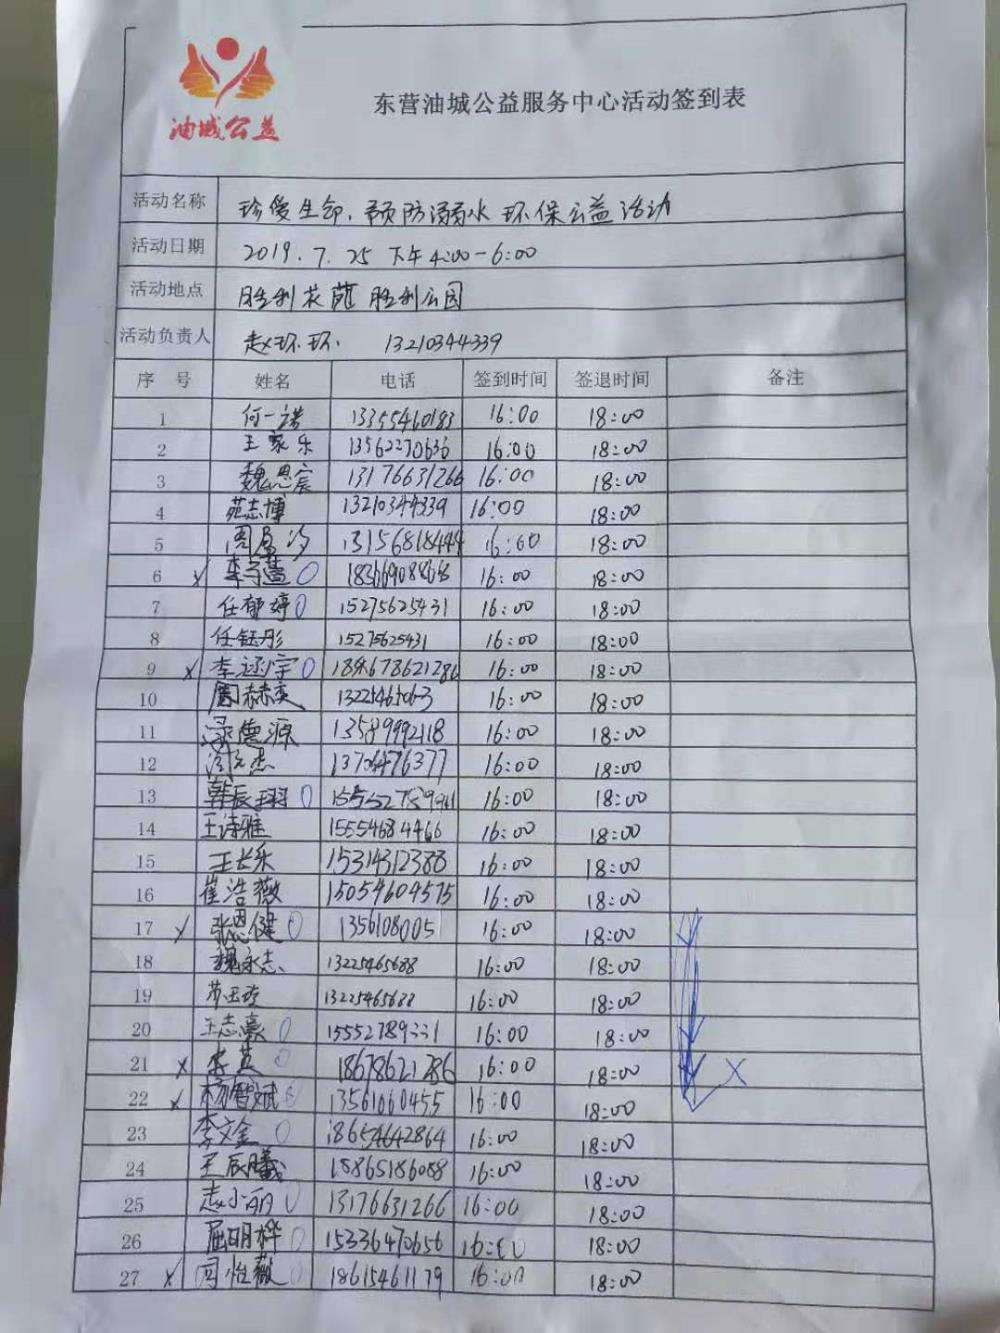 油城公益
东营油城公益服务中心活动签到表
活动名称 珍爱生命,预防溺水 环保公益活动
活动日期 2019.7.25 下午4:00-6:00
活动地点 胜利花苑 胜利公园
活动负责人 赵环环. 13210344339
序 号 姓名 电话 签到时间 签退时间 备注
1 何一诺 13355460183 16:00 18:00
2 王家乐 13562270636 16:00 18:00
3 魏恩宸 13176631266 16:00 18:00
4 苑志博 13210344339 16:00 18:00
5 13156818444 16:00 18:00
6 16:00 18:00
7 任郁婷 15275625431 16:00 18:00
8 任钰彤 15275625431 16:00 18:00
9 李涵宇 16:00 18:00
10 周赫奕 16:00 18:00
11 德源 13589992118 16:00 18:00
12 13706476377 16:00 18:00
13 韩辰翔 16:00 18:00
14 王诗雅 15554684466 16:00 18:00
15 王长乐 15314312388 16:00 18:00
16 崔浩薇 15054604575 16:00 18:00
17 张恩健 1356108005 16:00 18:00
18 魏永志 13225465688 16:00 18:00
19 13225465688 16:00 18:00
20 王志豪 15552789331 16:00 18:00
21 李英 18678621286 16:00 18:00 X
22 杨智斌 13561060455 16:00 18:00
23 李文金 18654642864 16:00 18:00
24 王辰曦 15865186088 16:00 18:00
25 小丽 13176631266 16:00 18:00
26 屈明桦 15336470656 16:00 18:00
27 周怡薇 18615461179 16:00 18:00